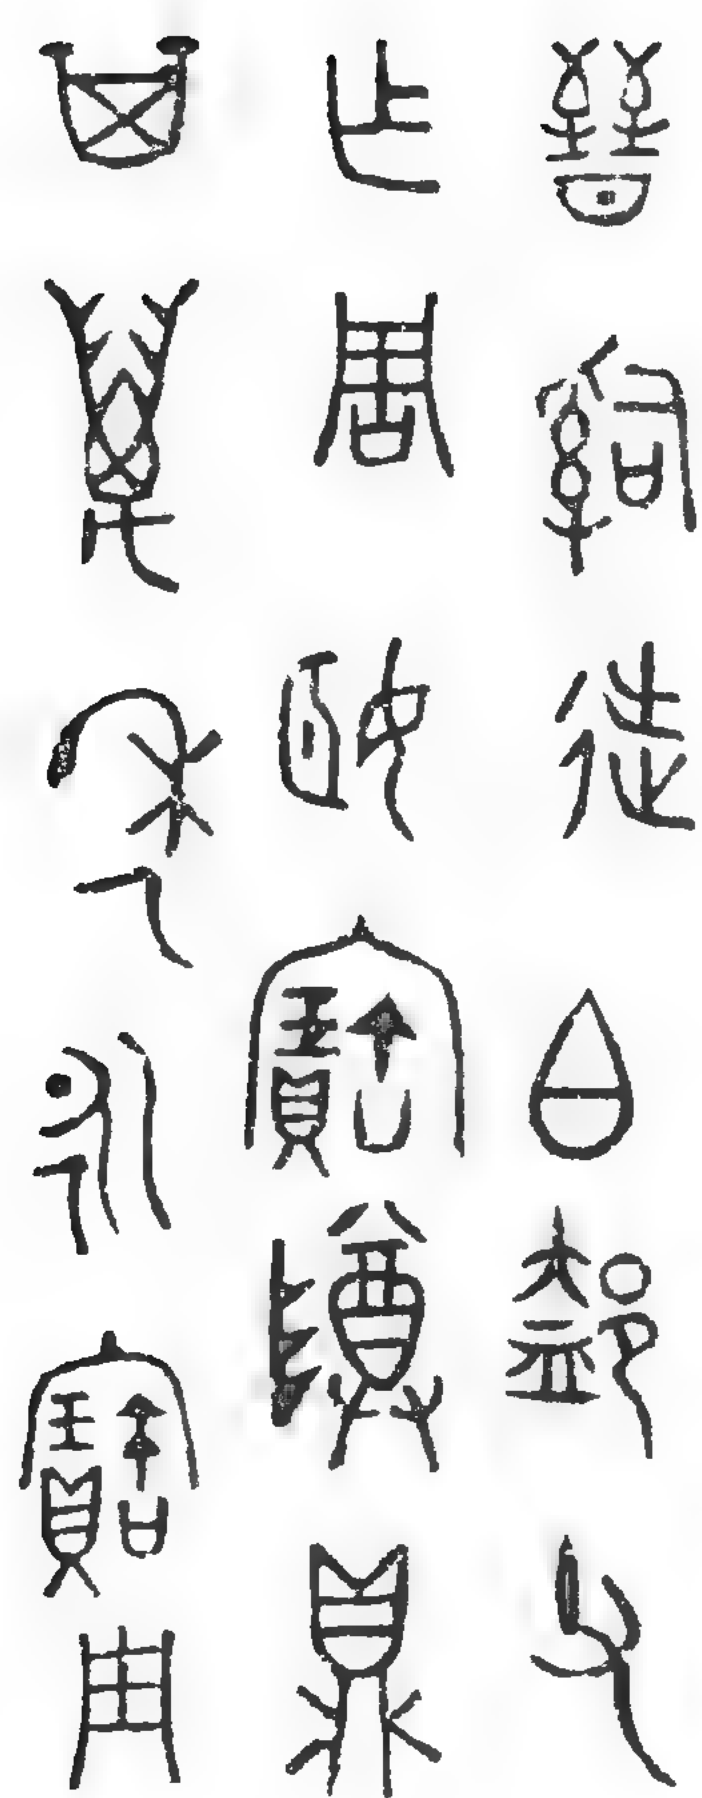 晉𤔲徒白父
乍周姬寶尊鼎
其萬年永寶用